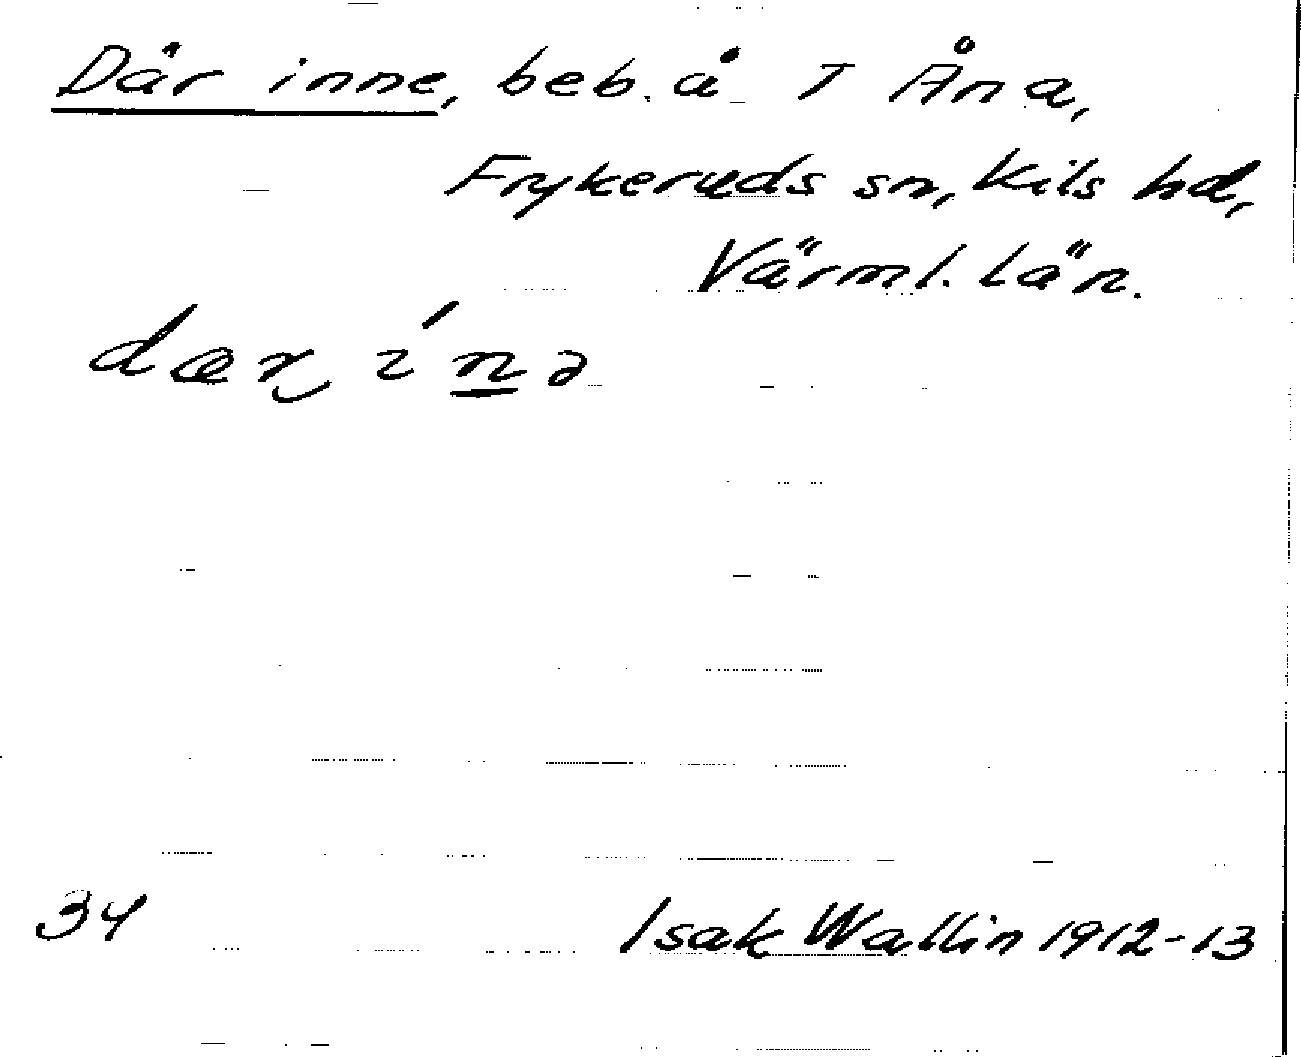 Där inne, beb. å T Åna,
Frykeruds sn, Kils hd,
Värml. län.
dær ína
34
Isak Wallin 1912-13